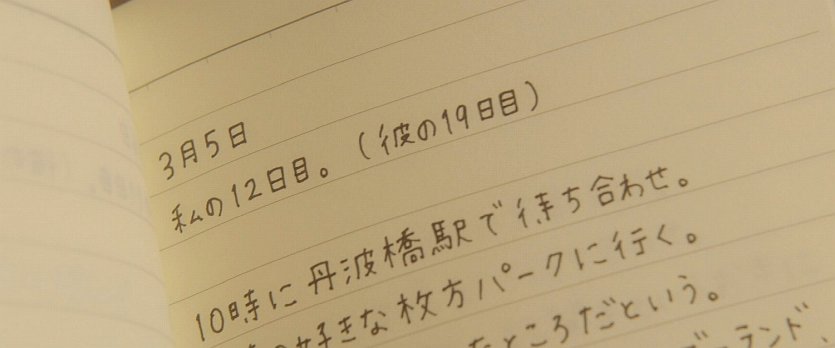 3月5日
私の12日目。(彼の19日目)
10時に丹波橋駅で待ち合わせ。
の好きな枚方パークに行く。
たところだという。
ーランド、